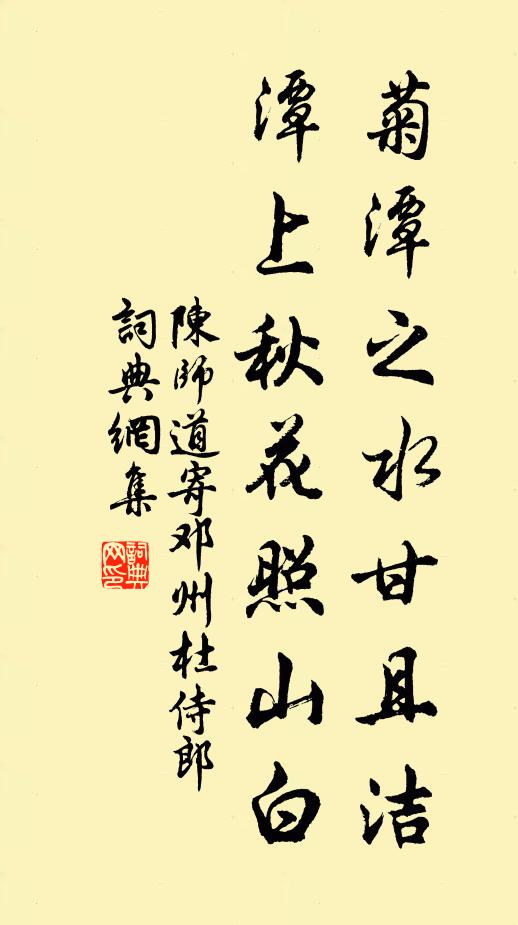 菊潭之水甘且洁
潭上秋花照山白
陳師道寄邓州杜侍郎
詞典網集
詞典网印